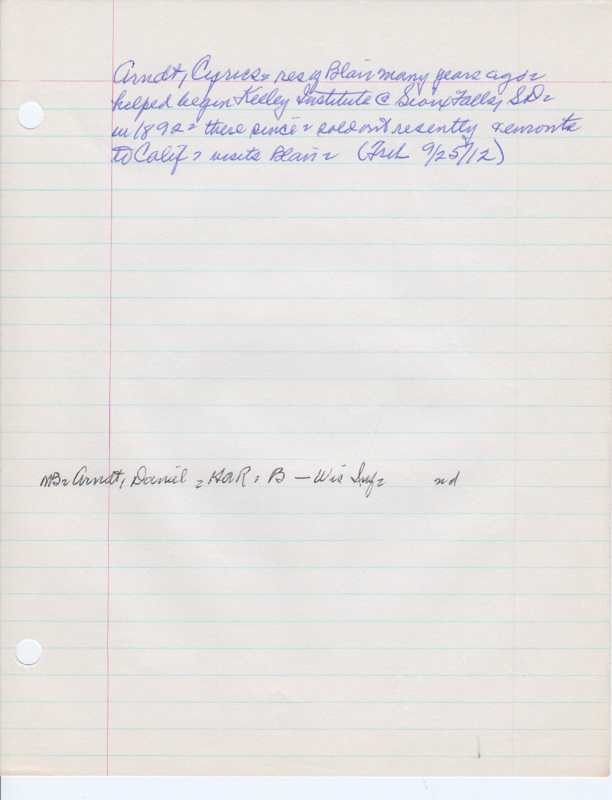 Arndt, Cyrus = res of Blair many years ago =
helped begin Keeley Institute @ Sioux Falls, SD =
in 1892 = there since = sold out resently & enroute
to Calif = visits Blair = (Trib 9/25/12)
MB = Arndt, Daniel = GAR = B — Wis Inf = nd